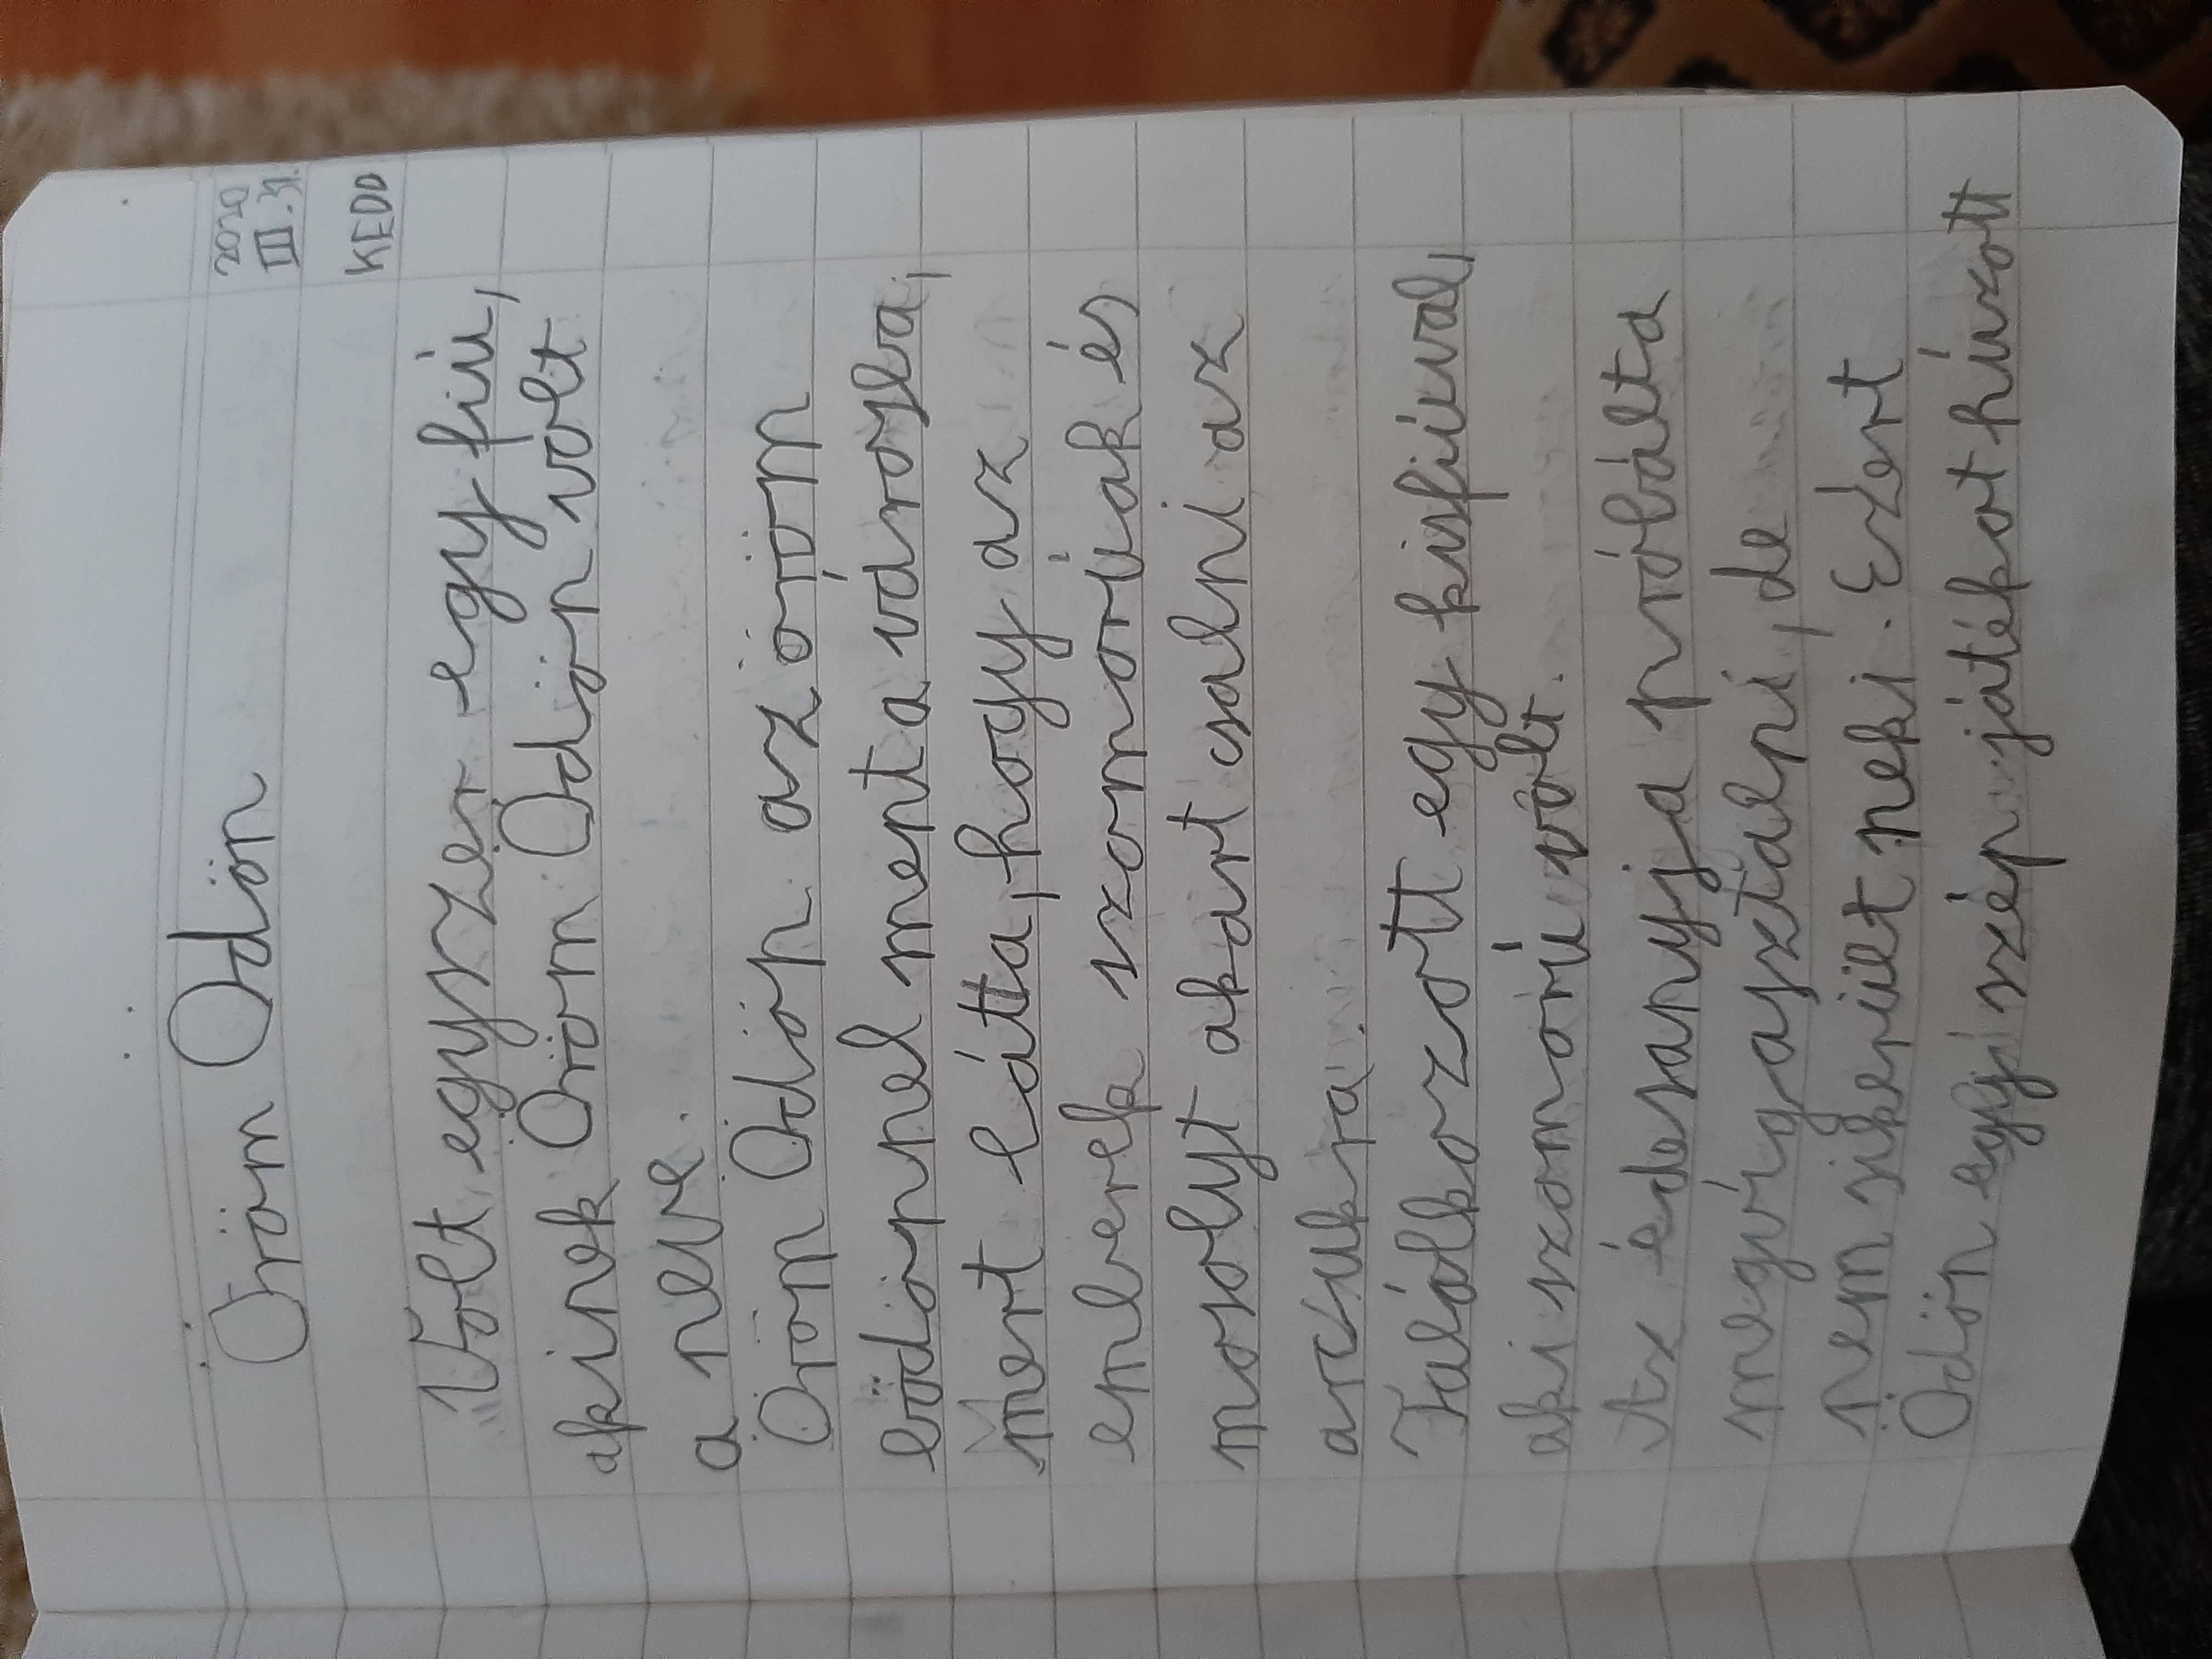 Öröm Ödön
2020
III.31.
KEDD
Volt egyszer egy fiú,
akinek Öröm Ödön volt
a neve.
Öröm Ödön az öröm
bödönnel ment a városba,
mert látta, hogy az
emberek szomorúak és
mosolyt akart csalni az
arcukra.
Találkozott egy kisfiúval,
aki szomorú volt.
Az édesanyja próbálta
megvígasztalni, de
nem sikerült neki. Ezért
Ödön egy szép játékot húzott